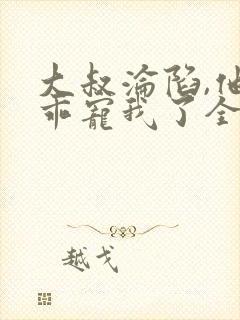 大叔淪陷,他
乖寵我了全
越戈